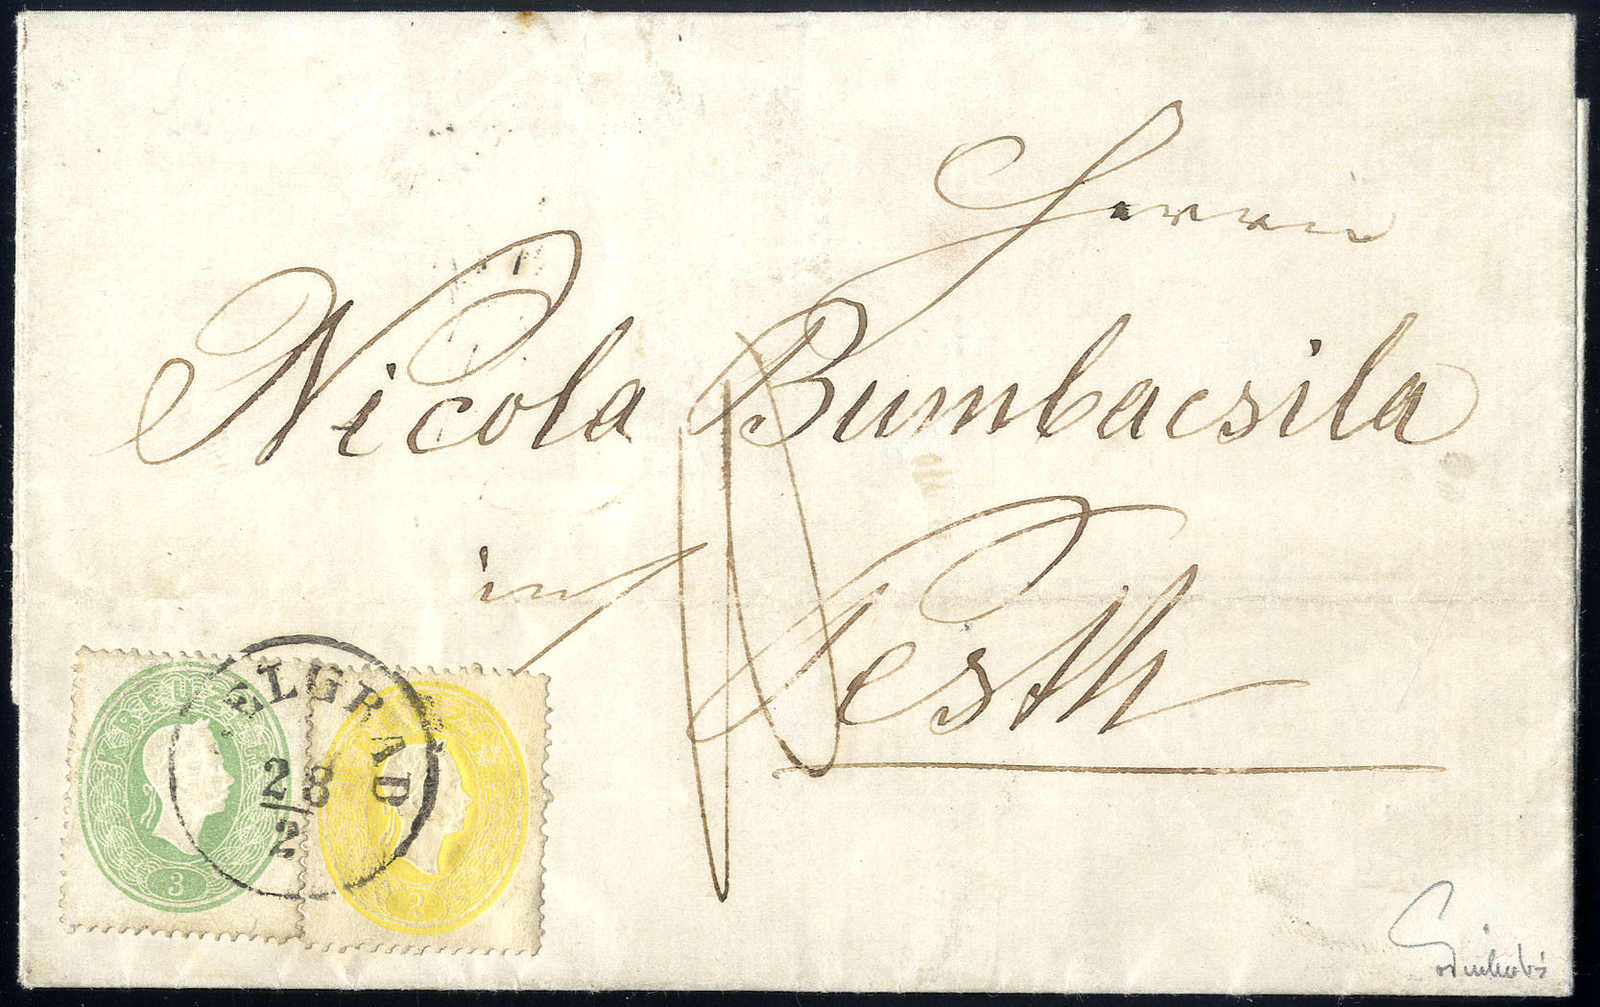 Herrn
Nicola Bumbacsila
in Pesth
KREUZER
3
2
BELGRAD
28
2